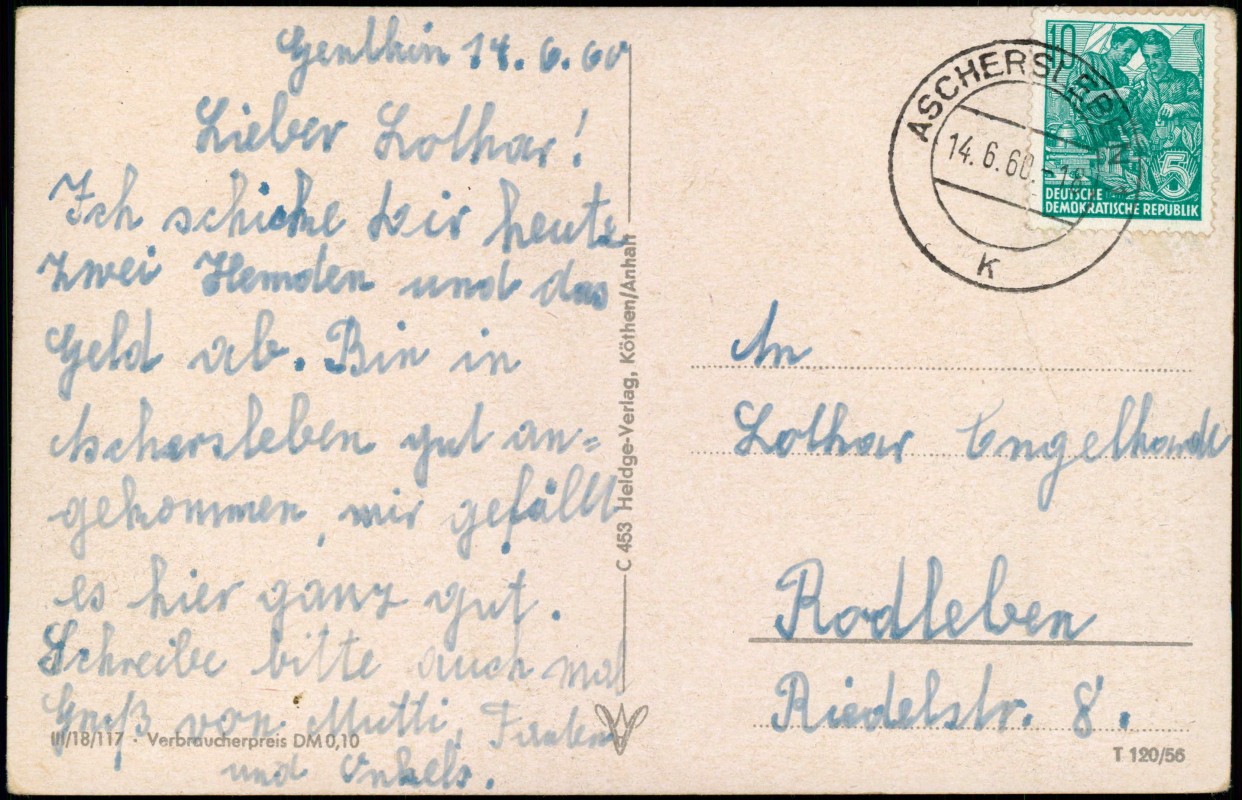 Genthin 14.6.60
Lieber Lothar!
Ich schicke Dir heute
zwei Hemden und das
Geld ab. Bin in
Aschersleben gut an=
gekommen, mir gefällt
es hier ganz gut.
Schreibe bitte auch mal
Gruß von Mutti, Tanten
und Onkels.
III/18/117 · Verbraucherpreis DM 0,10
C 453 Heldge-Verlag, Köthen/Anhalt
ASCHERSLEBEN
14.6.60.-18
K
10
5
DEUTSCHE
DEMOKRATISCHE REPUBLIK
An
Lothar Engelhardt
Rodleben
Riedelstr. 8.
T 120/56